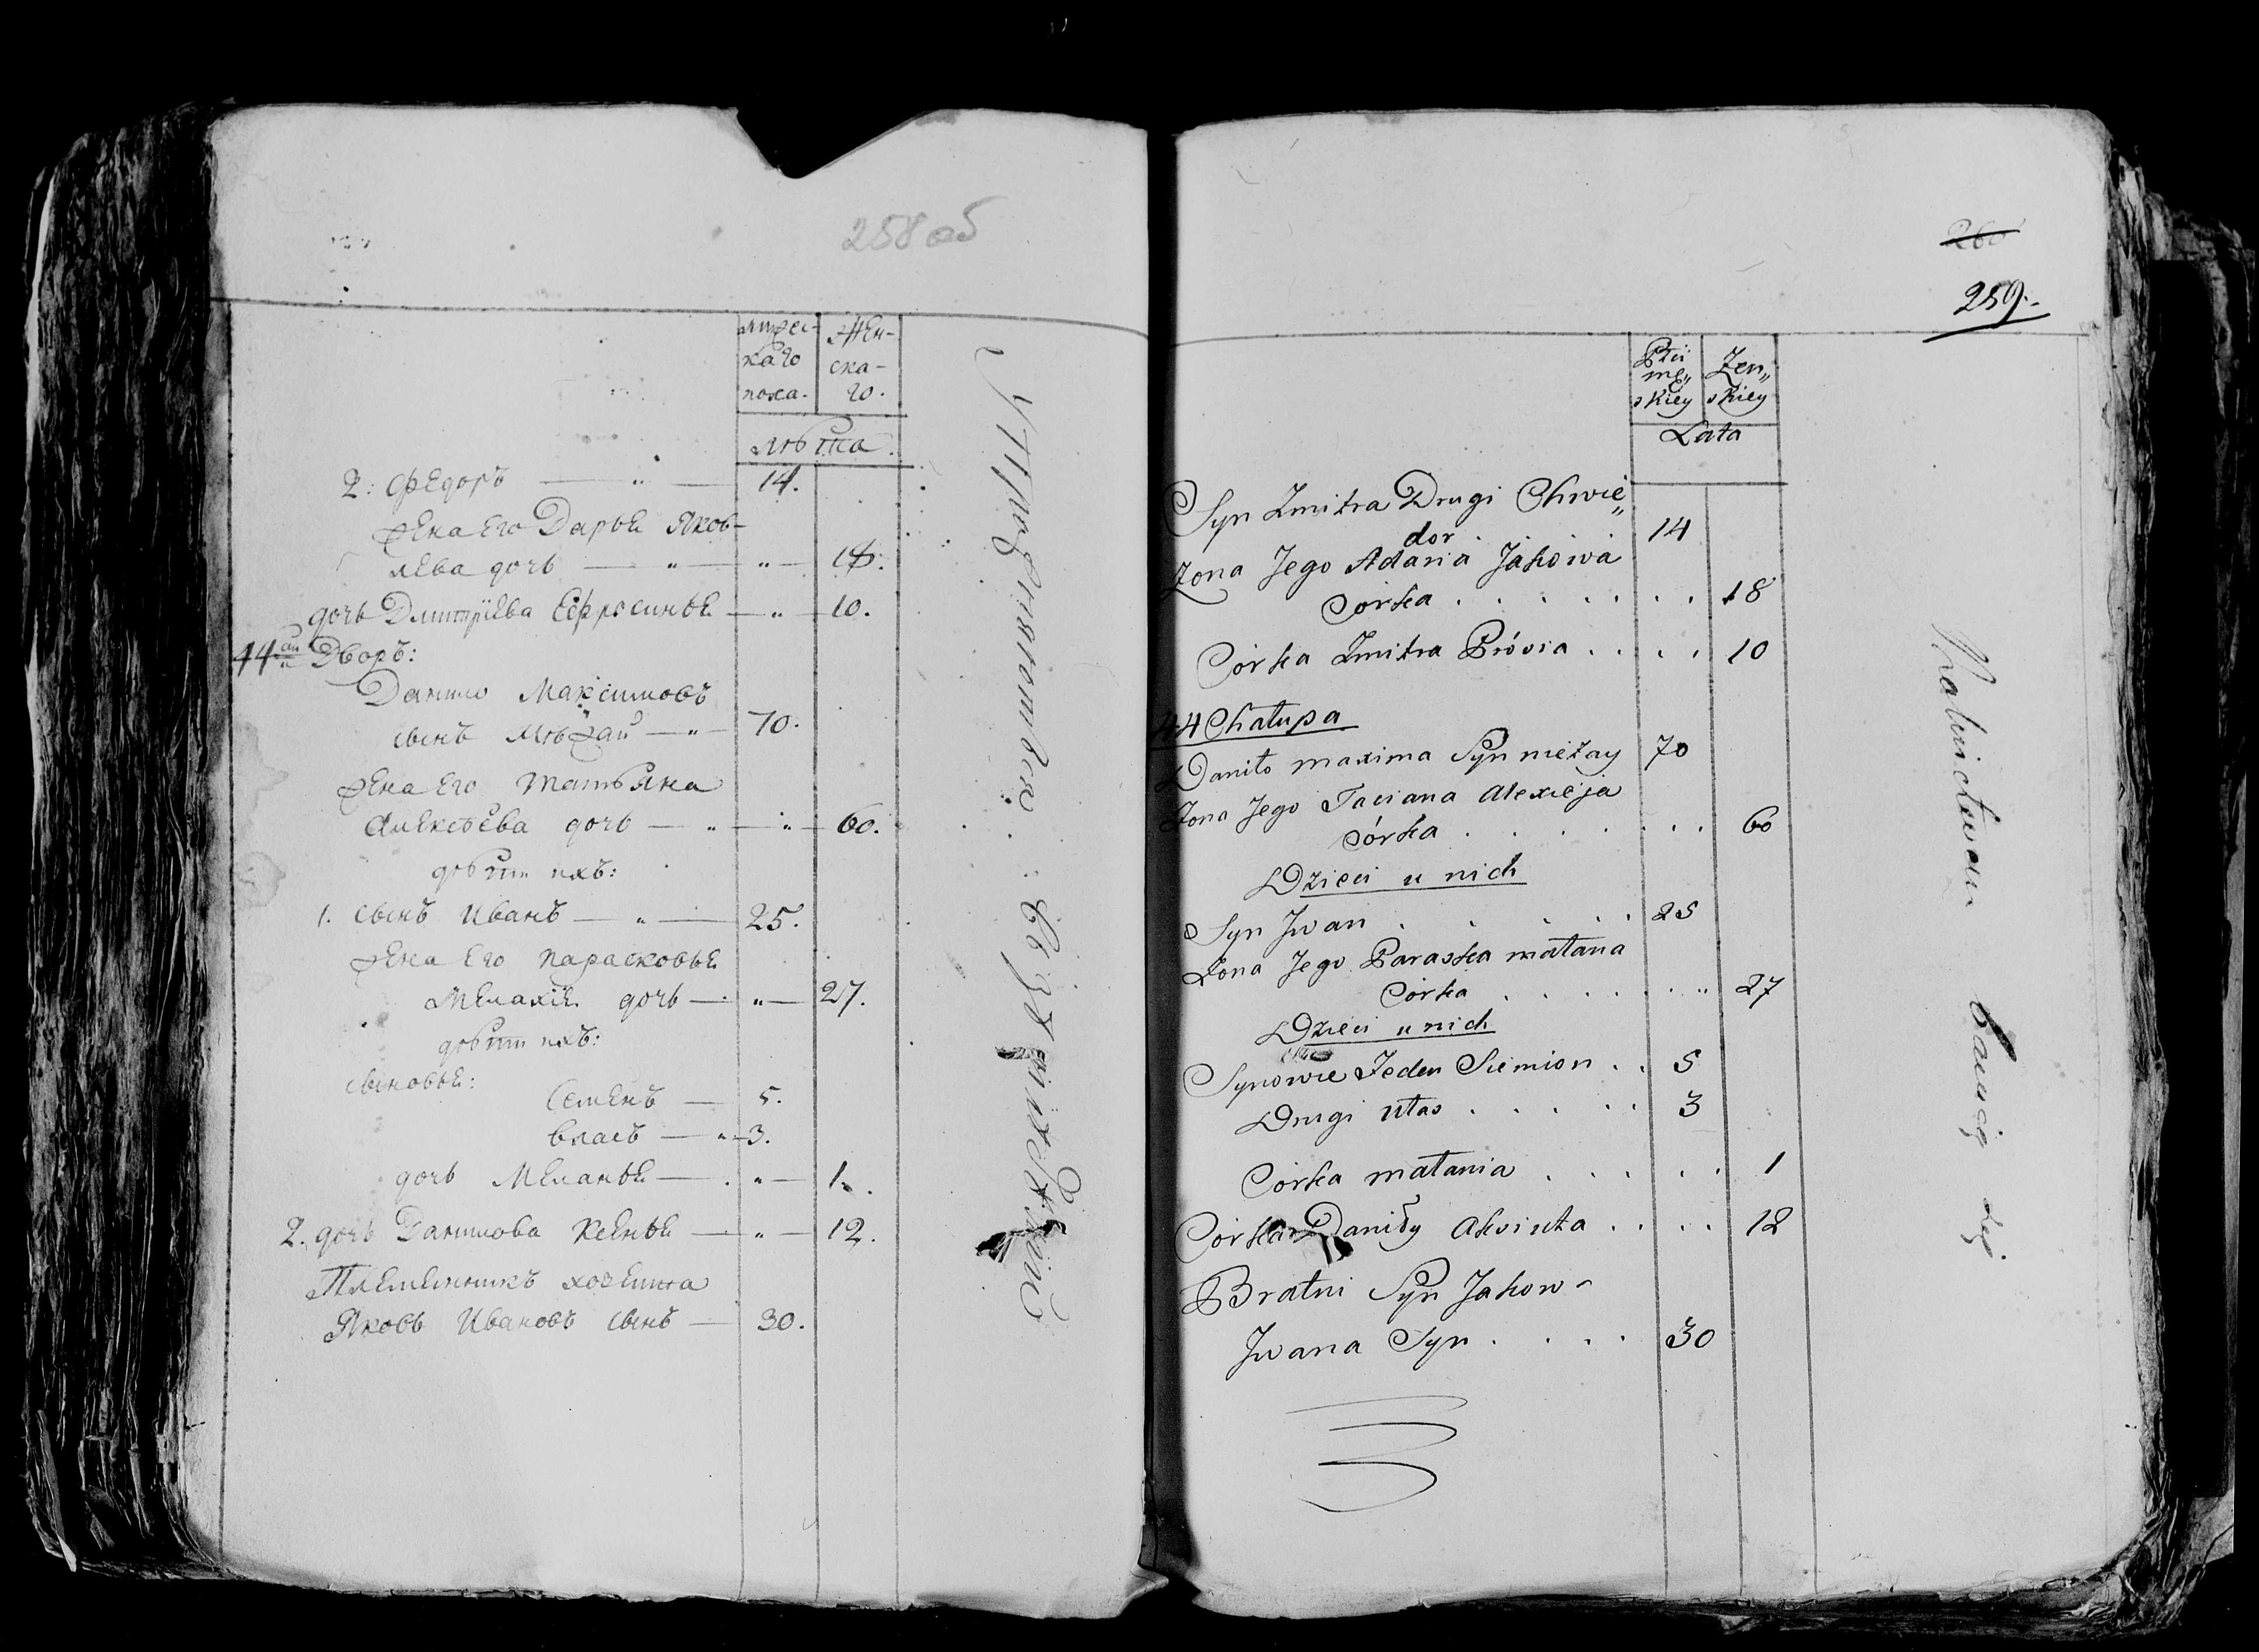 258 об
мужес-
каго
пола.
Жен-
ска-
го.
лѣта.
2: Федоръ — " — 14.
жена его Дарья Яков-
лева дочь — " — " — 18.
дочь Дмитріева Ефросинья — " — 10.
44ый Дворъ:
Данило Максимовъ
сынъ Мѣжай — " — 70.
жена его Татьяна
Алексѣева дочь — " — " — 60.
дѣти ихъ:
1. сынъ Иванъ — " — 25.
жена его Парасковья
дочь — " — 27.
дѣти ихъ:
сыновья:
Семенъ — 5.
Власъ — " — 3.
дочь Меланья — " — 1.
2. дочь Данилова Ксенья — " — 12.
Племенникъ хозяина
Яковъ Ивановъ сынъ — 30.
260
259.
Płci
mę„
skiey
Zen„
skiey
Lata
Syn Zmitra Drugi Chwie„
dor . 14
Zona Jego Adaria Jakowa
Corka . . . . . . . 18
Córka Zmitra Prósia . . . . 10
44 Chałupa
Daniło maxima Syn mieżay 70
Zona Jego Taciana Alexieja
Córka . . . . . . . 60
Dzieci u nich
Syn Jwan . . . . . 25
Zona Jego Paraska małana
Corka . . . . . . " 27
Dzieci u nich
Synowie Jeden Siemion . . 5
Drugi Ułas . . . . . 3
Córka małania . . . . . 1
Corka Daniły Aksiuta . . . . 12
Bratni Syn Jakow -
Jwana Syn . . . . 30